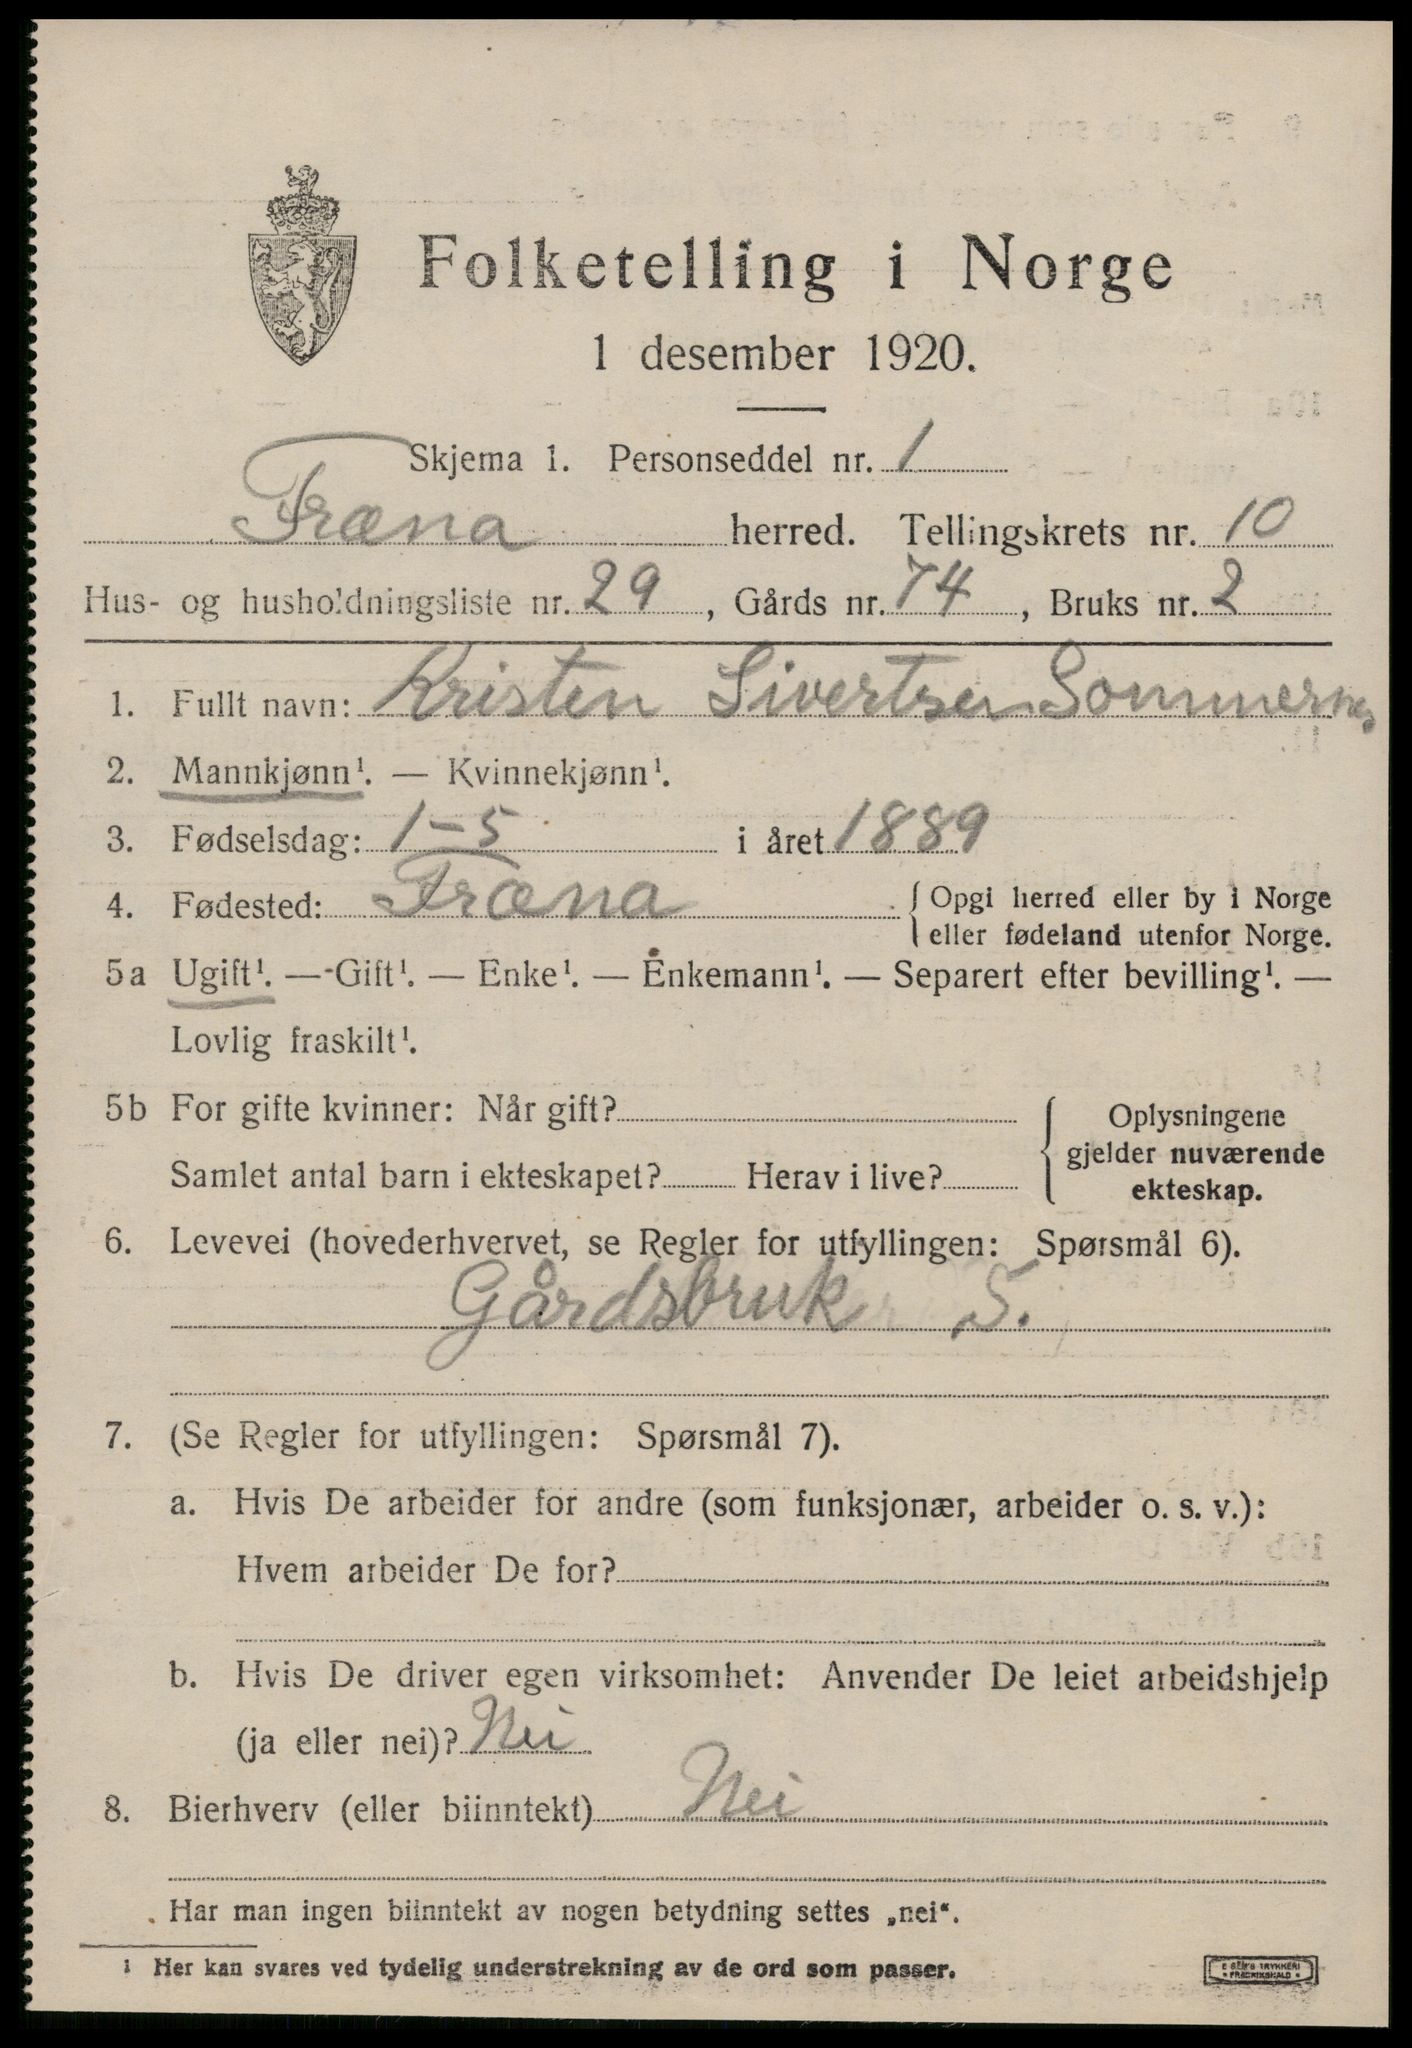 Folketelling i Norge
1 desember 1920.
Skjema 1. Personseddel nr. 1
Fræna herred. Tellingskrets nr. 10
Hus- og husholdningsliste nr. 29, Gårds nr. 74, Bruks nr. 2
1. Fullt navn: Kristen Sivertsen Sommernes
2. Mannkjønn¹. — Kvinnekjønn¹.
3. Fødselsdag: 1-5 i året 1889
4. Fødested: Fræna { Opgi herred eller by i Norge
eller fødeland utenfor Norge.
5a Ugift¹. — Gift¹. — Enke¹. — Enkemann¹. — Separert efter bevilling¹. —
Lovlig fraskilt¹.
5b For gifte kvinner: Når gift? { Oplysningene
gjelder nuværende
Samlet antal barn i ekteskapet? Herav i live?
ekteskap.
6. Levevei (hovederhvervet, se Regler for utfyllingen: Spørsmål 6).
Gårdsbruk S.
7. (Se Regler for utfyllingen: Spørsmål 7).
a. Hvis De arbeider for andre (som funksjonær, arbeider o. s. v.):
Hvem arbeider De for?
b. Hvis De driver egen virksomhet: Anvender De leiet arbeidshjelp
(ja eller nei)? Nei
8. Bierhverv (eller biinntekt) Nei
Har man ingen biinntekt av nogen betydning settes „nei“.
¹ Her kan svares ved tydelig understrekning av de ord som passer.